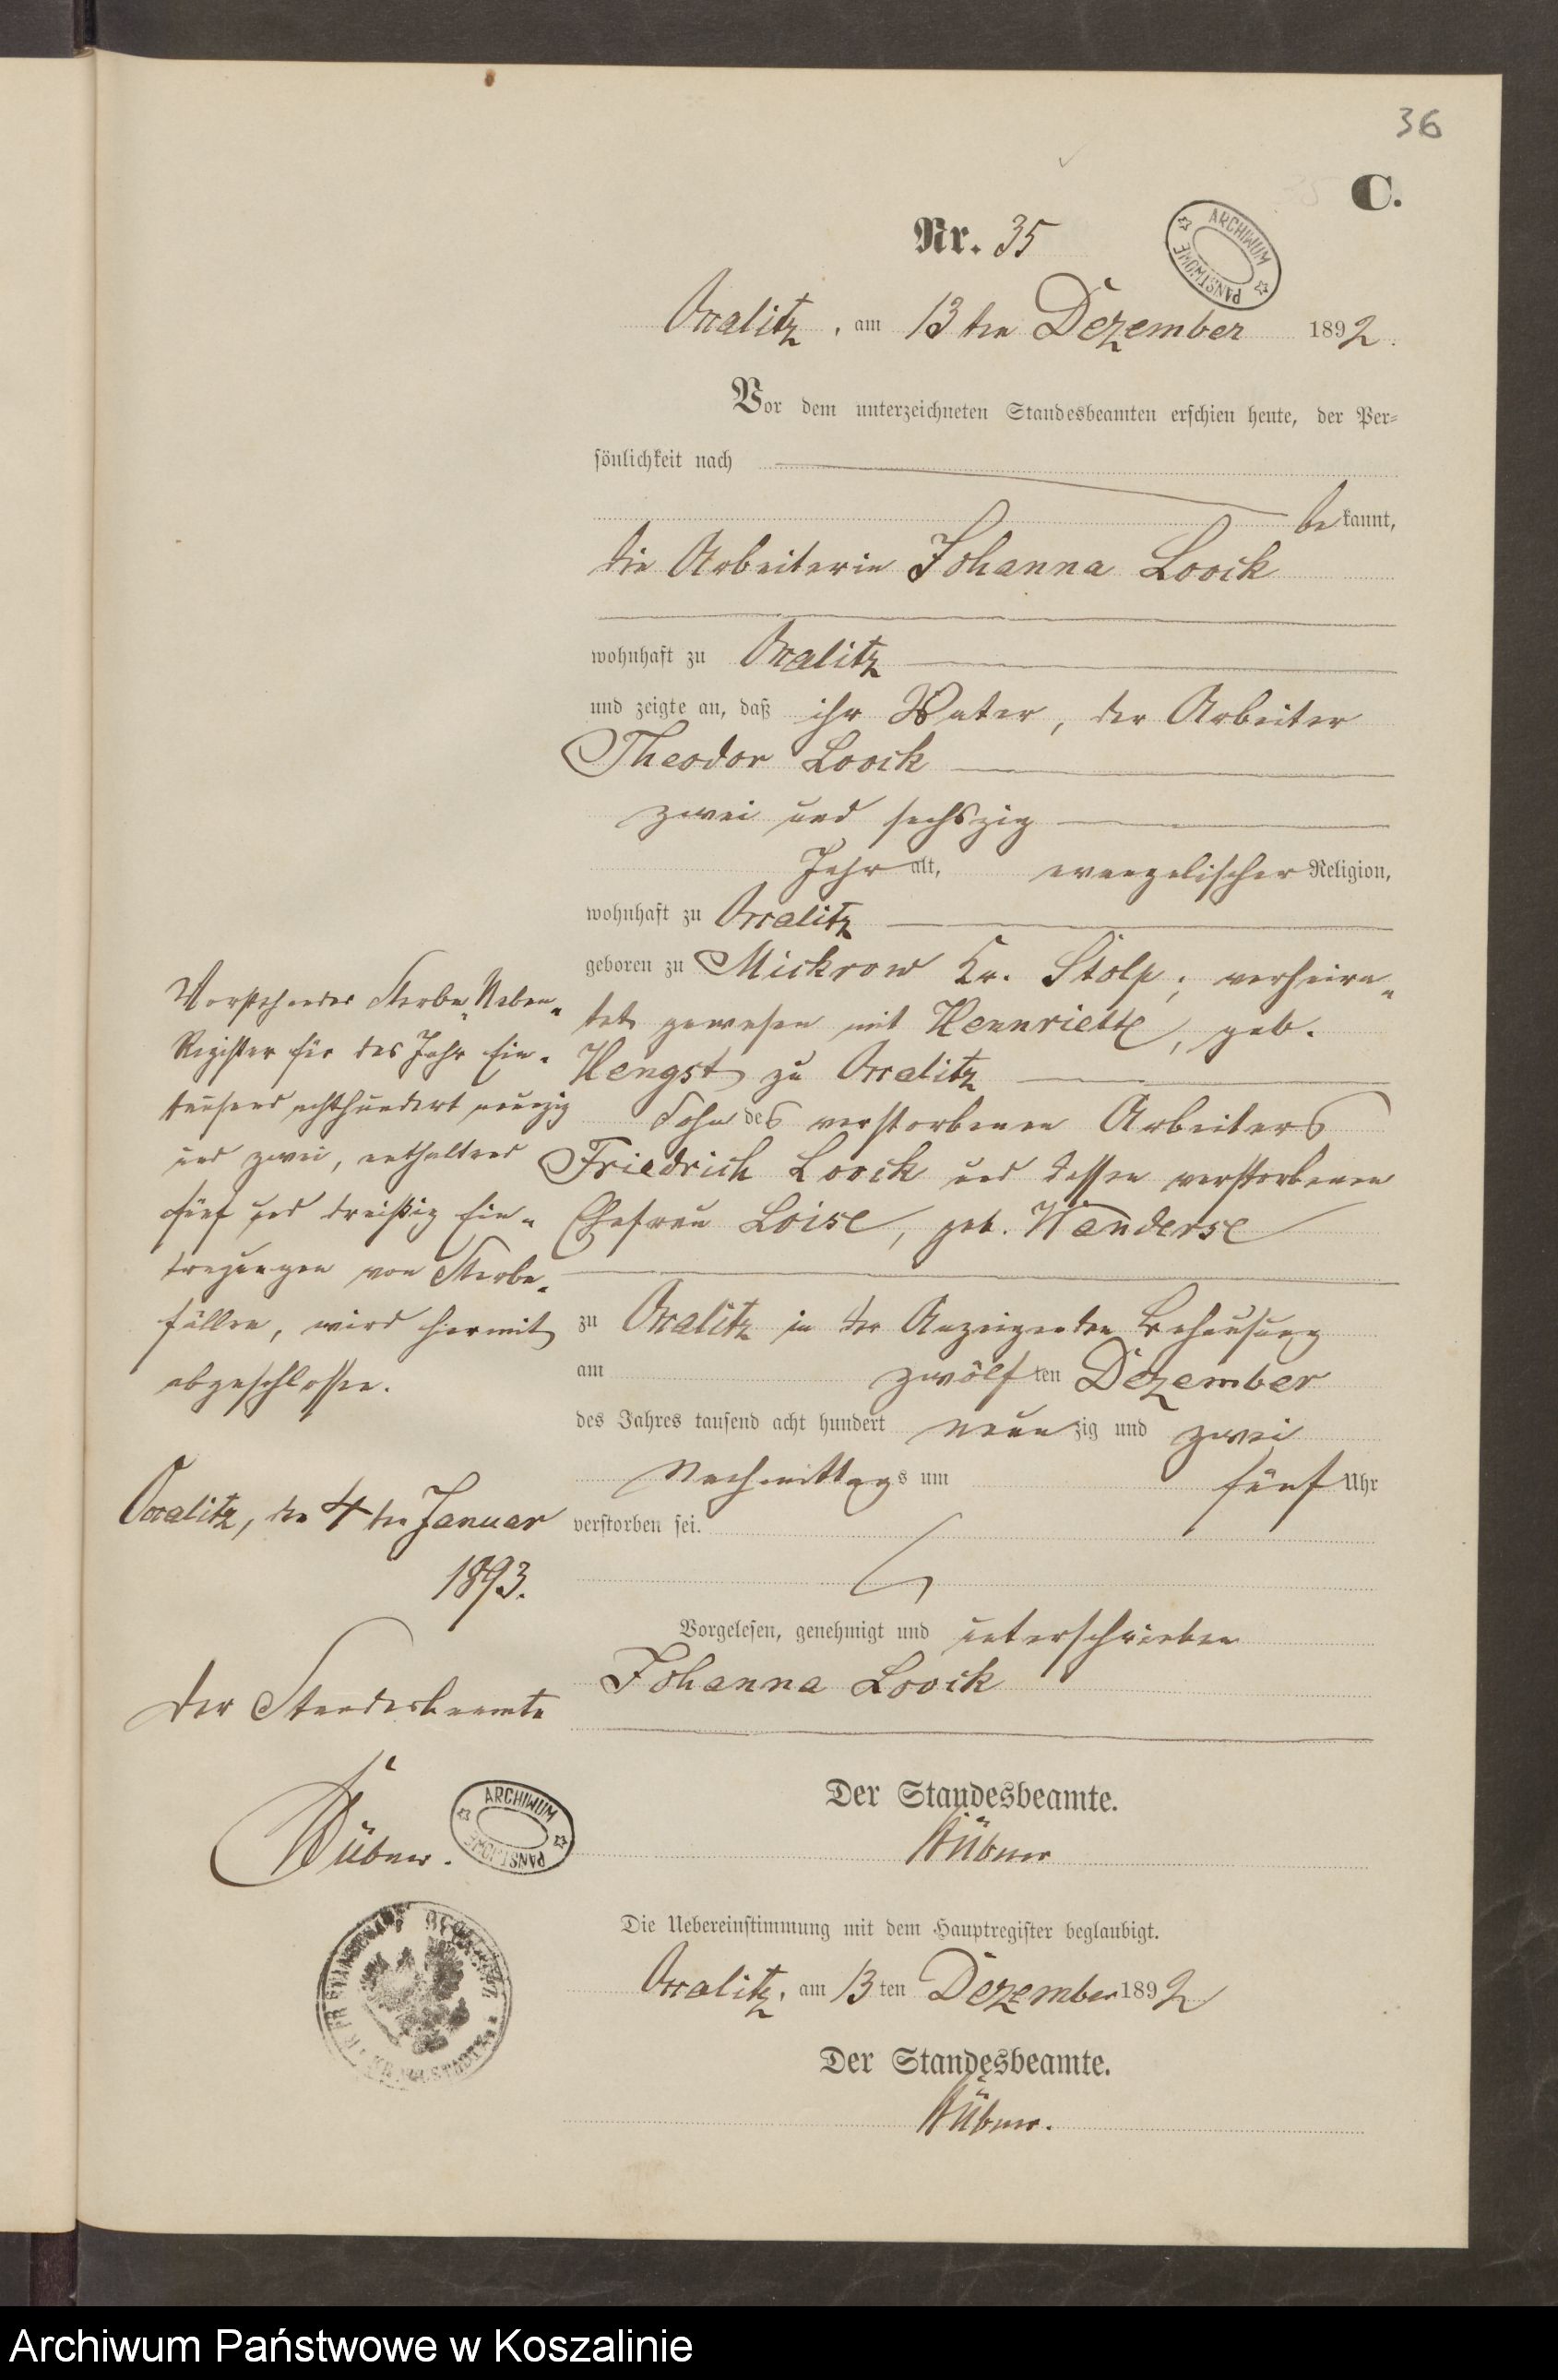 36
C.
Nr. 35
ARCHIWUM PAŃSTWOWE
Wralitz, am 13 ten Dezember 1892.
Vor dem unterzeichneten Standesbeamten erschien heute, der Per-
sönlichkeit nach
bekannt,
die Arbeiterin Johanna Loock
wohnhaft zu
und zeigte an, daß ihr Vater, der Arbeiter
Theodor Loock
zwei und sechszig
Jahr alt, evangelischer Religion,
wohnhaft zu
geboren zu Mickrow Kr. Stolp; verheira-
tet gewesen mit Hennriette, geb.
Hengst zu
Sohn des verstorbenen Arbeiters
Friedrich Loock und dessen verstorbenen
Ehefrau Loise, geb.
zu in der Anzeigenden Behausung
am zwölf ten Dezember
des Jahres tausend acht hundert neunzig und zwei
Nachmittags um fünf Uhr
verstorben sei.
Vorgelesen, genehmigt und unterschrieben
Johanna Loock
Der Standesbeamte.
Die Uebereinstimmung mit dem Hauptregister beglaubigt.
am 13 ten Dezember 1892
Der Standesbeamte.
Vorstehendes Sterbe-Neben-
Register für das Jahr Ein-
tausend achthundert neunzig
und zwei, enthaltend
fünf und dreißig Ein-
tragungen von Sterbe-
fällen, wird hiermit
abgeschlossen.
den 4 ten Januar
1893.
Der Standesbeamte
ARCHIWUM PAŃSTWOWE
Archiwum Państwowe w Koszalinie